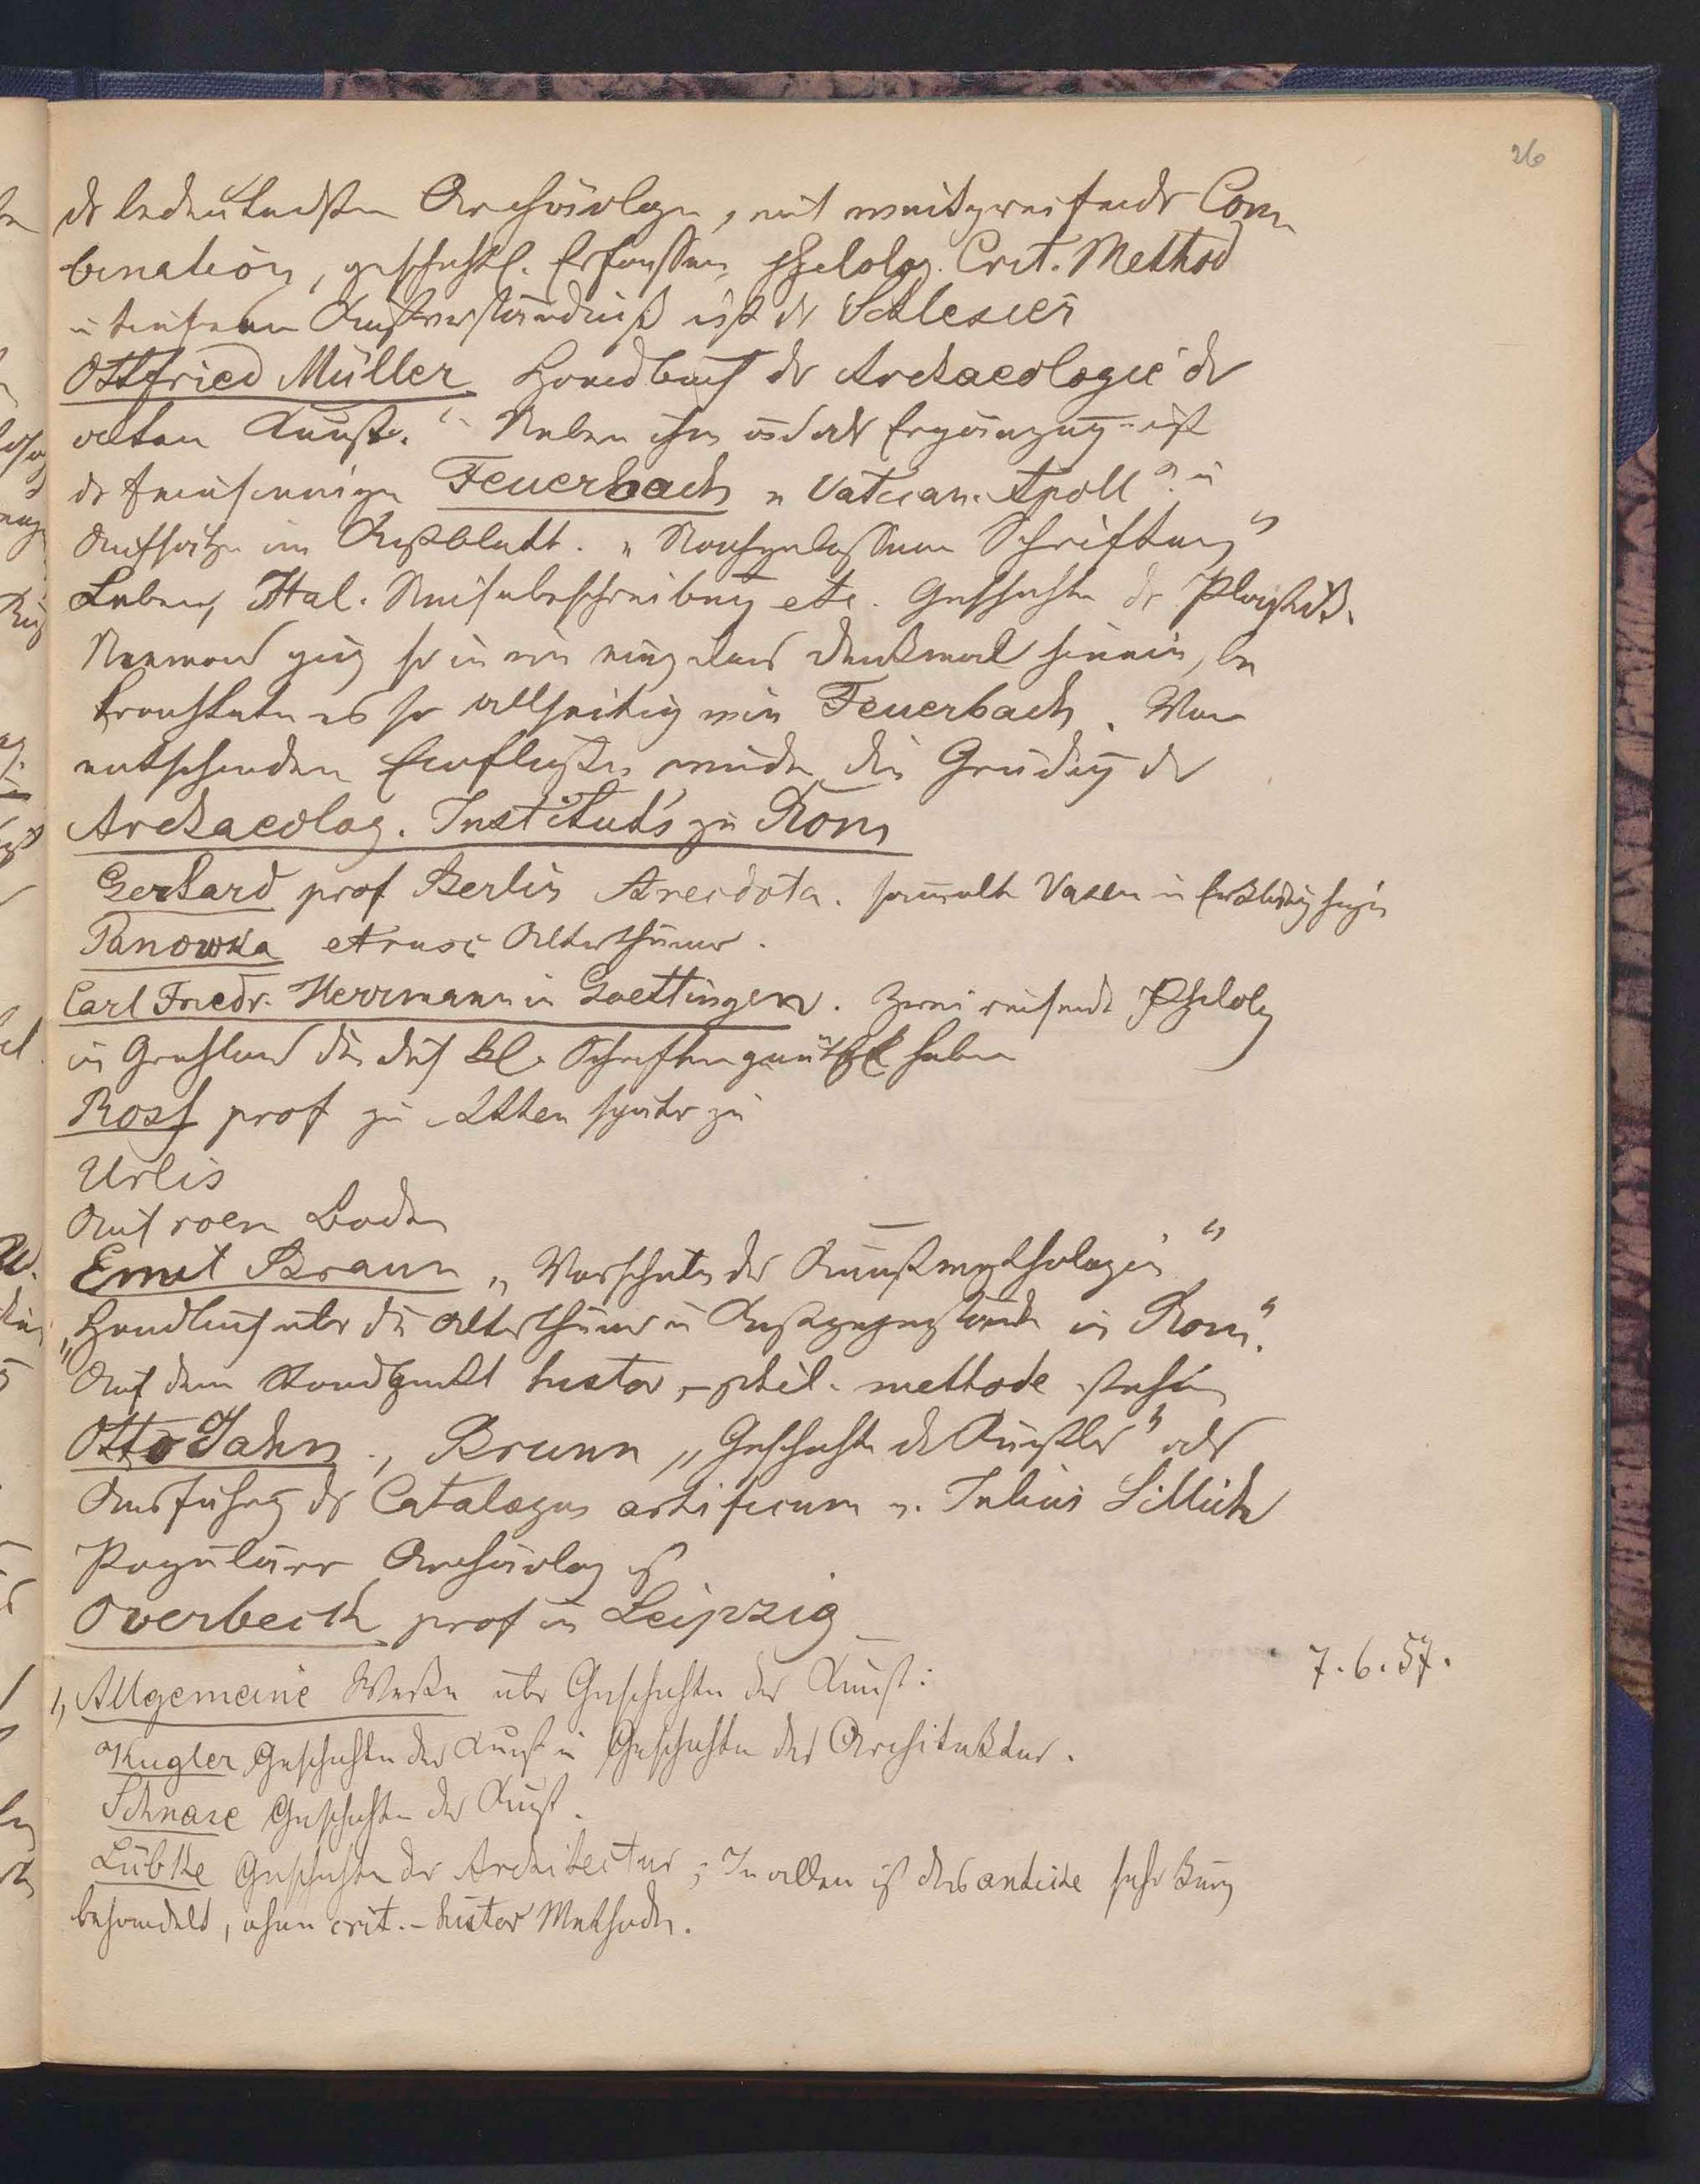 26
der bedeutendsten Archäologen, mit weitgreifender Com-
bination, geschichtl. Erfassen, philolog. Crit. Method
u tiefem Kunstverständniß ist der Schlesier
Ottfried Müller Handbuch der Archaeologie der
alten Kunst." Neben ihm als Ergänzung ist
der feinsinnige Feuerbach „Vatican. Apoll" u
Aufsätze im Kstblatt. „Nachgelassene Schriften"
Leben, Ital. Reisebeschreibung etc. Geschichte der Plastik.
Niemand ging so in ein einzelnes Denkmal hinein, be
trachtete es so allseitig wie Feuerbach. Von
entschiedem Einfluße wurde die Gründg der
Archaeolog. Instituts zu Rom
Gerhard prof Berlin Anecdota. sammelte Vasen u
Panowka etrusc Alterthümer.
Carl Friedr. Herrmann in Goettingen. Zwei reisende Philolog
in Grichland die durch kl. Schriften genützt haben
Ross prof zu Athen später zu
Urlis
Auf Boden
Emil Braun „Vorschule der Kunstmythologie"
„Handbuch über die Alterthümer u Kstgegenstände in Rom".
Auf dem Standpunkt histor-phil. methode stehen
Otto Jahn, Brunn „Geschichte der Künstler" als
Ausführg des Catalogus artificum v. Julius Sillich
Populärer Archäolog ist
Overbeck prof in Leipzig
7.6.57.
1, Allgemeine Werke über Geschichte der Kunst:
Kugler Geschichte der Kunst u Geschichte der Architektur.
Schnase Geschichte der Kunst.
Lübke Geschichte der Architectur; In allen ist das antike sehr kurz
behandelt, ohne crit.-histor Methode.